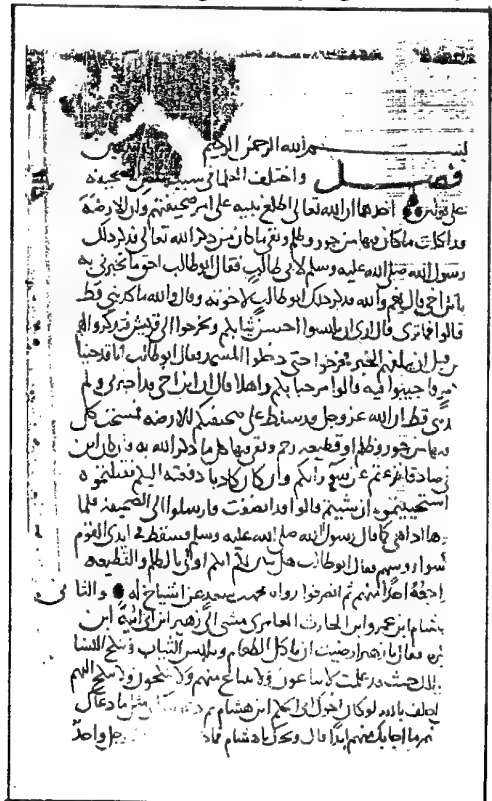 بسم الله الرحمن الرحيم
فصل واختلف العلماء في سبب نقض الصحيفه
على قولين احدهما ان الله تعالى اطلع نبيه على امر صحيفتهم وان الارضة
قد اكلت ما كان فيها من جور وظلم وبقي ما كان من ذكر الله تعالى فذكر ذلك
رسول الله صلى الله عليه وسلم لابي طالب فقال ابو طالب احق ما تخبرني به
يابن اخي قال نعم والله فذكر ذلك ابو طالب لاخوته وقال والله ما كذبني قط
قالوا فما ترى قال ارى ان تلبسوا احسن ثيابكم وتخرجوا الى قريش فنذكر
قبل ان يبلغهم الخبر فخرجوا حتى دخلوا المسجد فقال ابو طالب انا قد جئنا
فاجيبوا فيه قالوا مرحبا بكم واهلا قال ان ابن اخي قد اخبرني ولم
قط ان الله عز وجل قد سلط على صحيفتكم الارضه فمسخت كل
فيها من جور وظلم او قطيعه رحم وبقي فيها كل ما ذكر الله به فان كان ابن
صادقا نزعتم عن سو رأيكم وان كان كاذبا دفعته اليكم فقتلتموه
استحييتموه ان شيتم قالوا قد انصفت فارسلوا الى الصحيفه فلما
هي كما قال رسول الله صلى الله عليه وسلم فسقط في ايدي القوم
رؤسهم فقال ابو طالب هل لكم انكم اولى بالظلم والقطيعه
احد منهم ثم انصرفوا رواه محمد بن سعد عن اشياخ له والثاني
هشام ابن عمرو ابن الحارث العامري مشى الى زهير ابن ابي امية ابن
فقال يا زهير ارضيت ان تاكل الطعام وتلبس الثياب وتنكح النسا
حيث قد علمت لا يباعون ولا يبتاع منهم ولا ينكحون ولا ينكح اليهم
احلف بالله لو كان اخوال ابي الحكم ابن هشام ثم دعوته الى مثل ما دعاك
ما اجابك منهم ابدا قال ويحك يا هشام فماذا رجل واحد